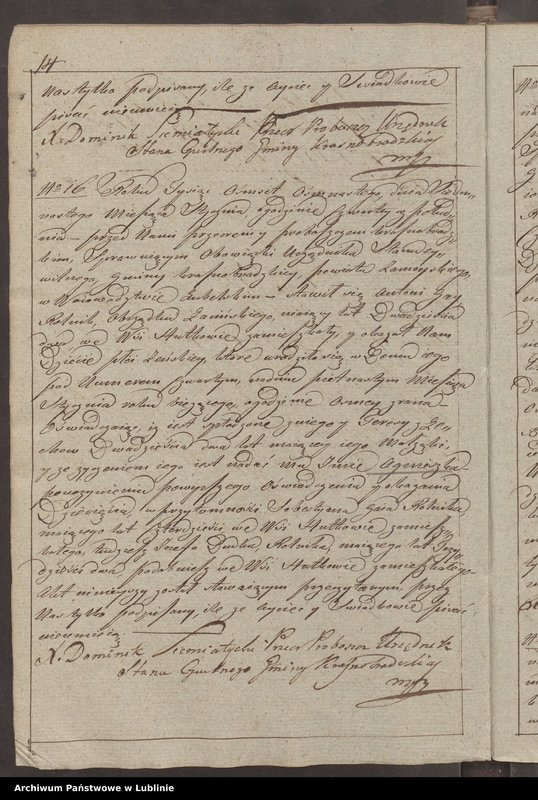 14
Nas tylko podpisany, ile ze Oyciec y Swiadkowie
pisać nieumieią
X. Dominik Siemiatycki Przeor Proboszcz Urzędnik
Stanu Cywilnego Gminy Krasnobrodzkiéj
mpp
No 16 Roku Tysiąc Osmset Osmnastego, dnia Siedm„
nastego Miesiąca Stycznia, o godzinie czwartey z połud„
nia — przed Nami przeorem y proboszczem krasnobrodz
kim, Sprawuiącym Obowiązki Urzędnika Stanu Cy„
wilnego, Gminy krasnobrodzkiey, powiatu Zamoyskiego,
w Woiewodztwie Lubelskim — stawił się Antoni Gay
Rolnik, maiący lat Dwadzieścia
dwa we Wsi Hutkowie zamieszkały, y okazał Nam
Dziecie płci Zeńskiey, które urodziło się w Domu iego
pod Numerem czwartym, na dniu pietnastym Miesiąca
Stycznia roku bieżącego, o godzinie Osmey zrana —
Oświadczaiąc, iż iest spłodzone z niego y Teressy z Le„
chow Dwadzieścia dwa lat maiącey iego Małżąki,
y że życzeniem iego iest nadać mu Imie Agnieszka
po uczynieniu powyższego Oświadczenia y okazaniu
Dziecięcia, w przytomności Sobestyana Gara Rolnika
maiącego lat czterdzieści we Wsi Hutkowie zamiesz„
kałego, tudzież Jozefa Dudka, Rolnika, maiącego lat Trzy„
dzieści dwa, podobnież we Wsi Hutkowie zamieszkałego
Akt ninieyszy został stawaiącym przeczytanym, przez
Nas tylko podpisany, ile ze Oyciec y Swiadkowie pisać
nieumieią
X. Dominik Siemiatycki Przeor Proboszcz Urzędnik
Stanu Cywilnego Gminy Krasnobrodzkiéj
mpp
Archiwum Państwowe w Lublinie